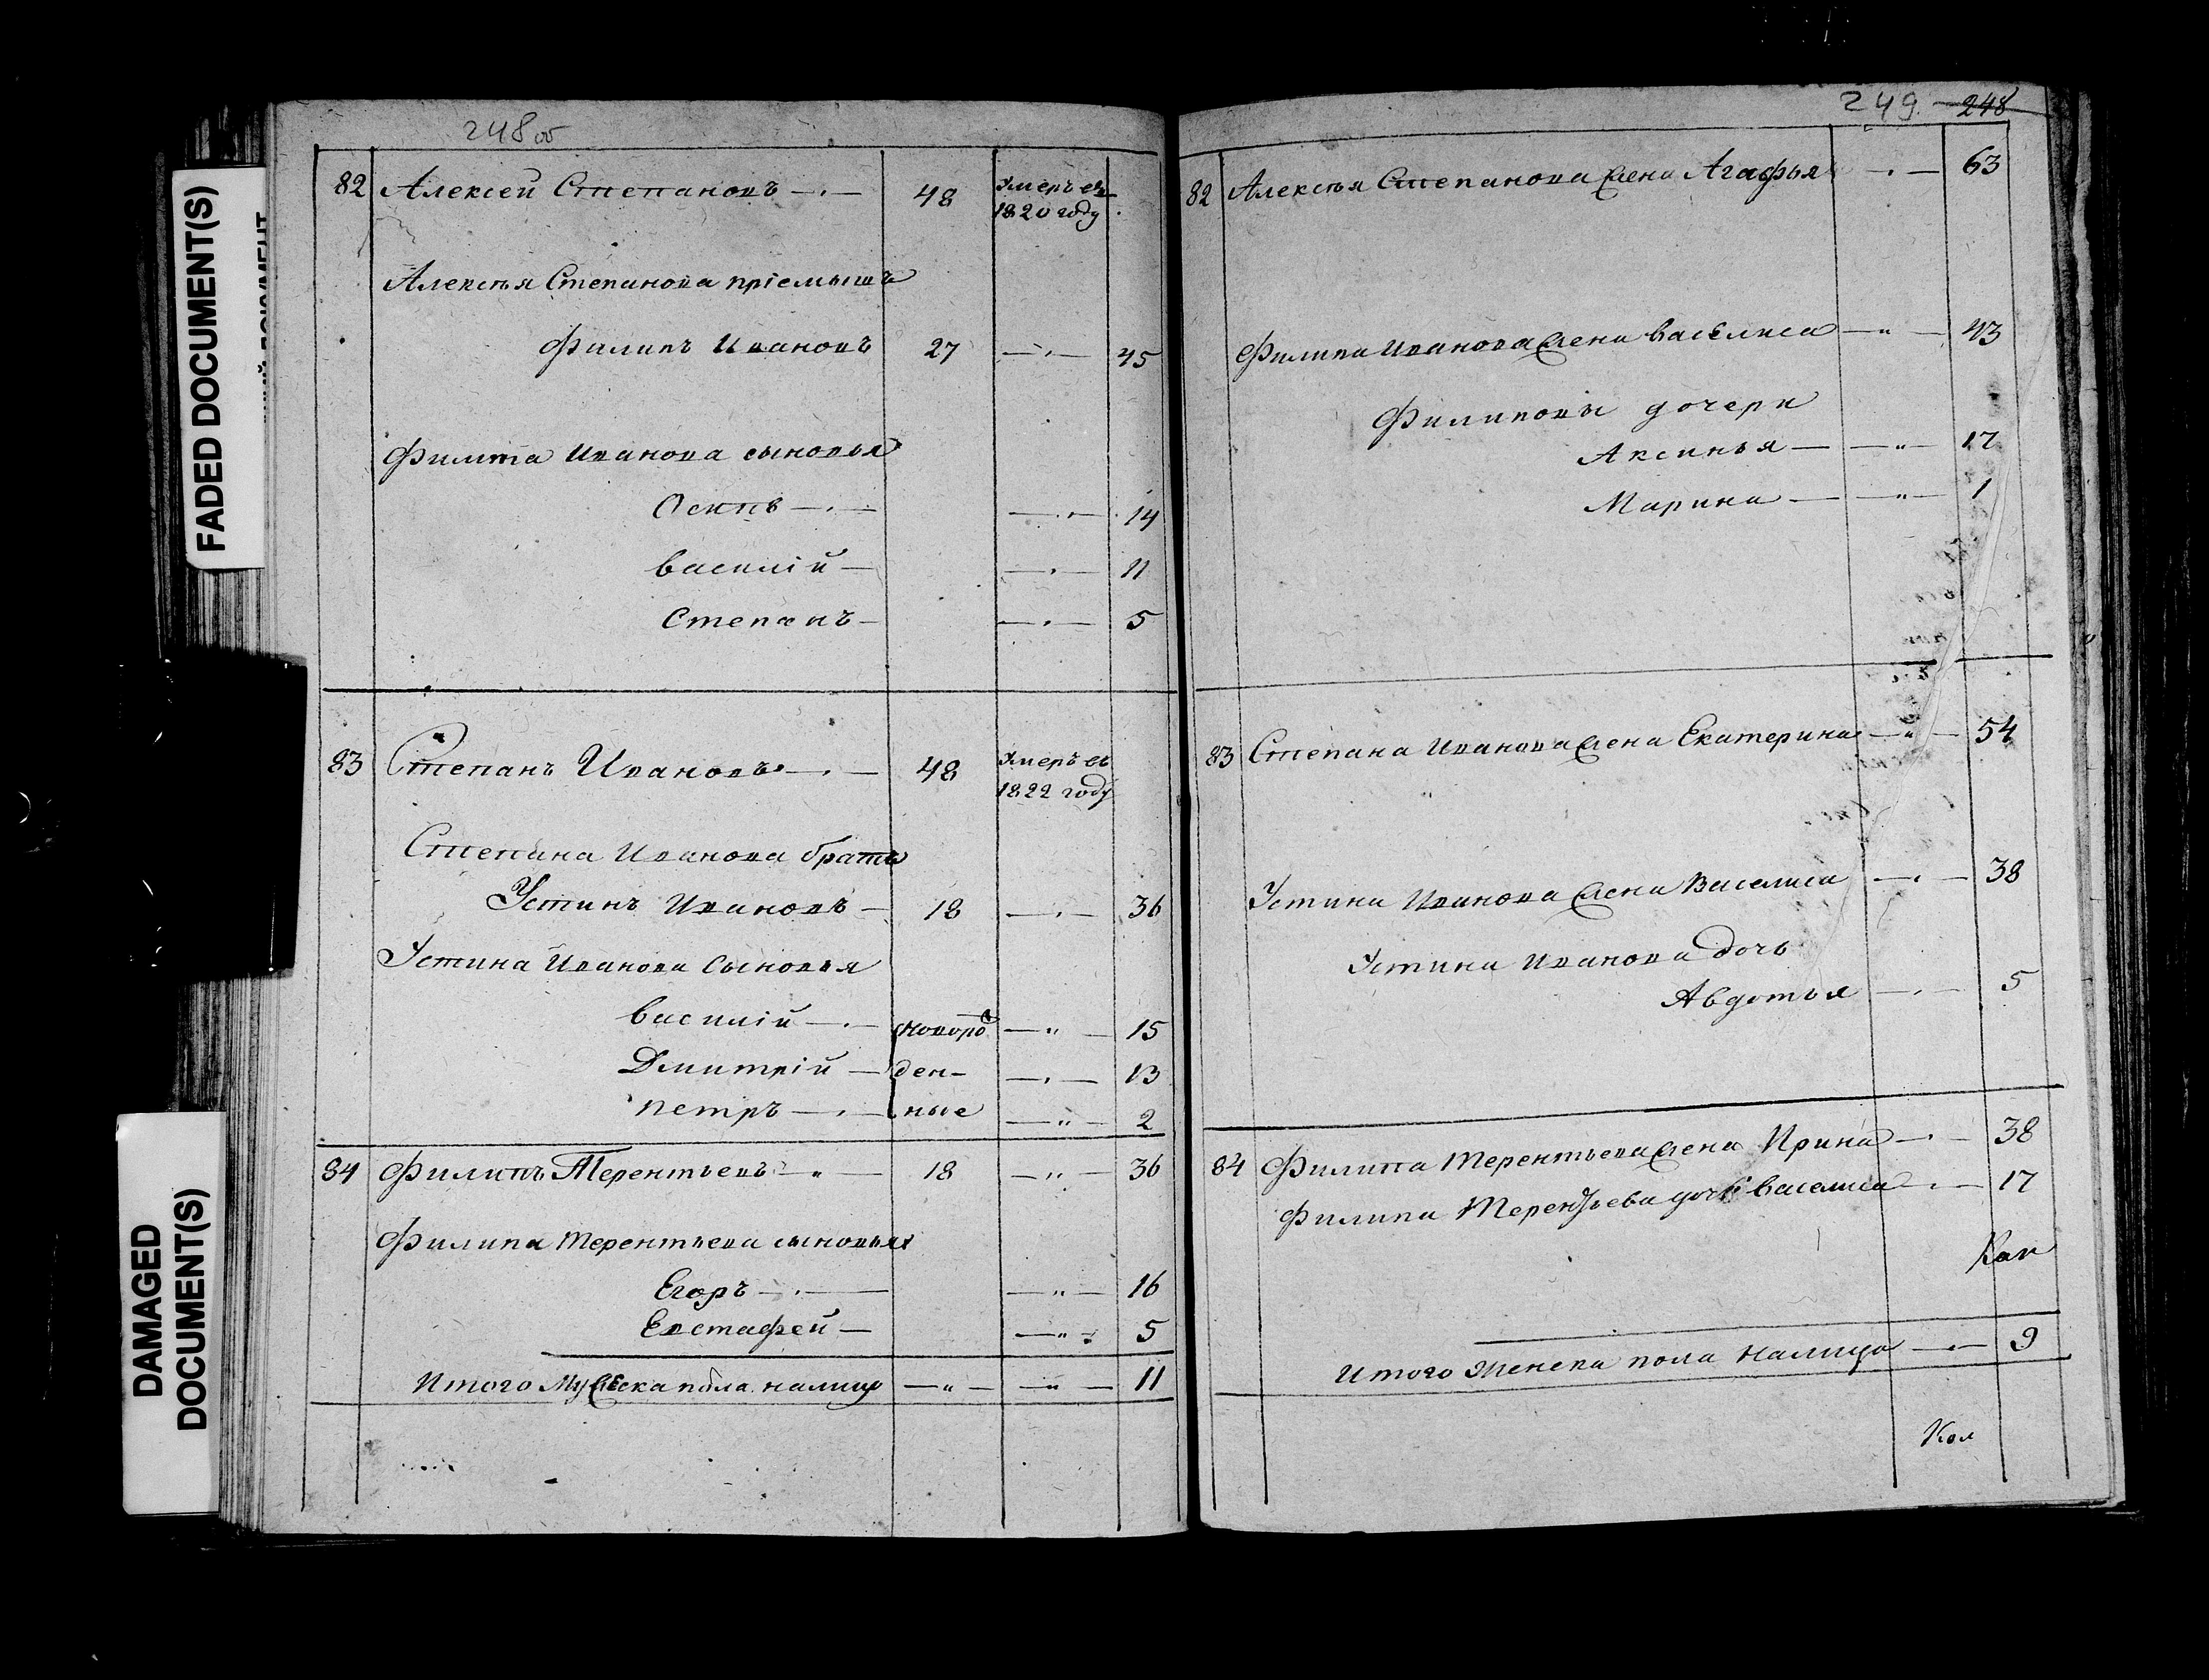 FADED DOCUMENT(S)
DAMAGED
DOCUMENT(S)
248 об
82 Алексей Степановъ 48 умеръ въ
1820 году
Алексѣя Степанова пріемышъ
Филипъ Ивановъ 27 45
Филипа Иванова сыновья
Осипъ 14
василій 11
Степанъ 5
83 Степанъ Ивановъ 48 умеръ въ
1822 году
Степана Иванова братъ
Устинъ Ивановъ 18 36
Устина Иванова Сыновья
василій новорож 15
Дмитрій ден- 13
петръ ные 2
84 Филипъ Терентьевъ 18 36
Филипа Терентьева сыновья
Егоръ 16
Евстафей 5
Итого Мужеска пола налицо 11
249 248
82 Алексѣя Степанова жена Агафья 63
Филипа Иванова жена василиса 43
Филиповы дочери
Аксинья 17
Марина 1
83 Степана Иванова жена Екатерина 54
Устина Иванова жена Василиса 38
Устина Иванова дочь
Авдотья 5
84 Филипа Терентьева жена Ирина 38
Филипа Терентьева дочь василиса 17
Итого женска пола налицо 9